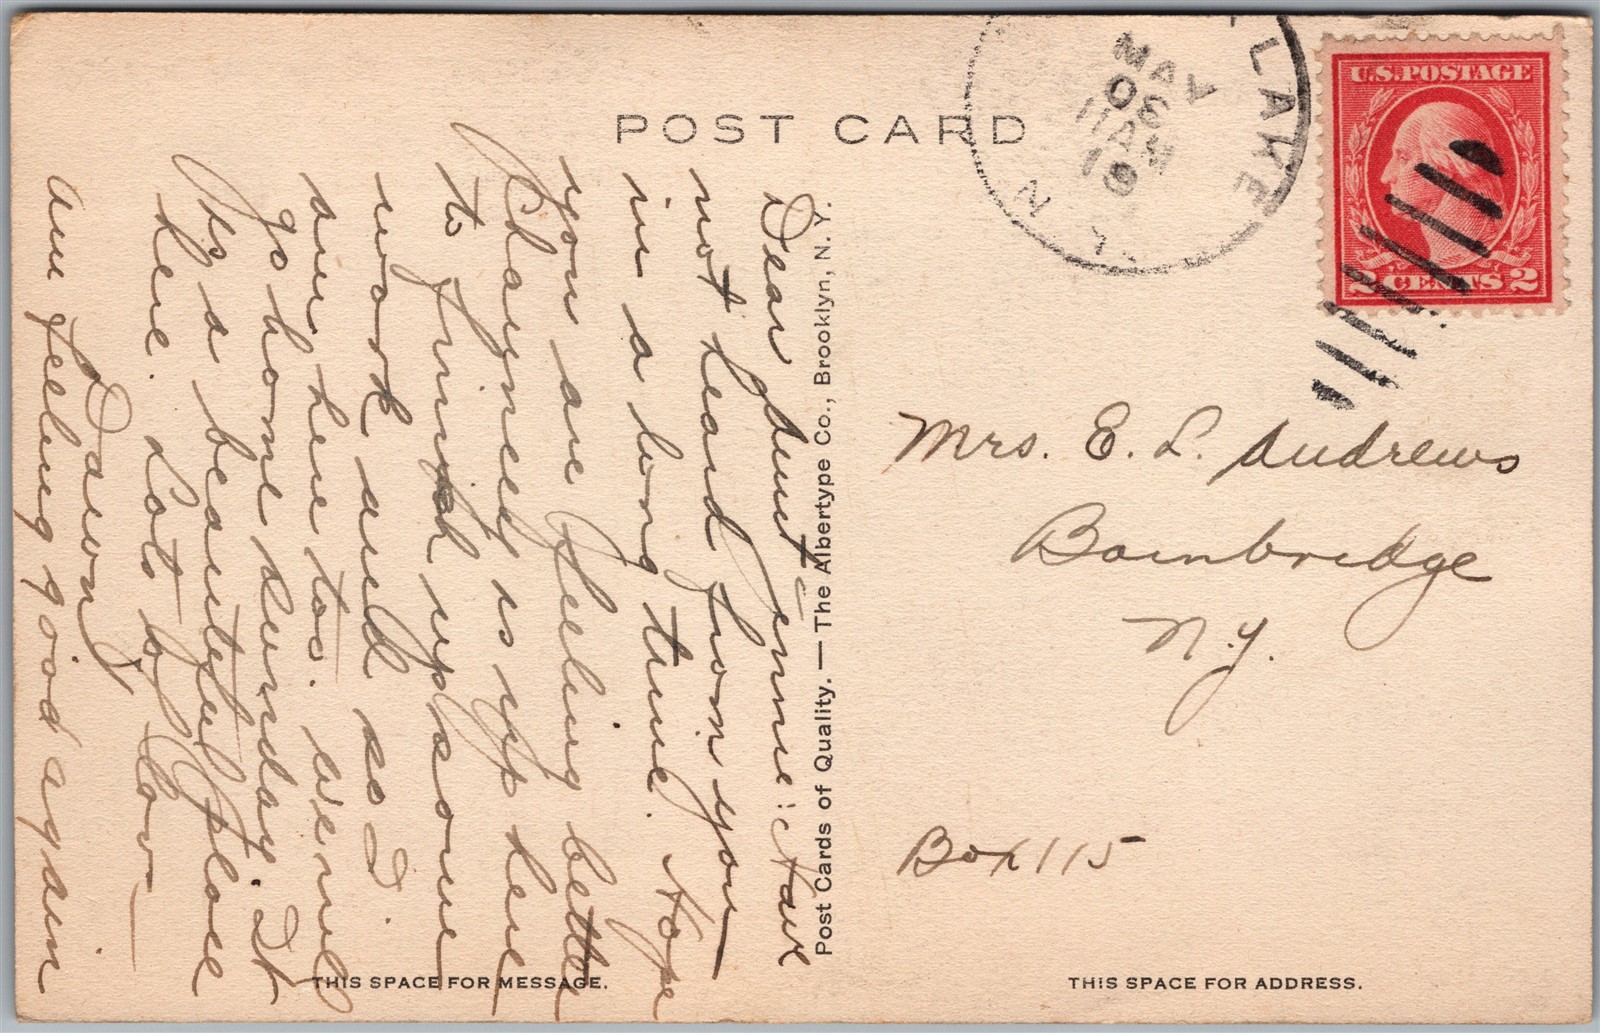 POST CARD
LAKE
N.Y.
MAY
06
11 AM
19
U.S. POSTAGE
2 CENTS 2
Dear Aunt Jennie: Have
not heard from you
in a long time. Hope
you are feeling better
Charyned is up here
to finish up some
work and so I
am here too. We will
go home Sunday. It
is a beautiful place
here. Lots of love
Dawn
Am feeling good again
Post Cards of Quality. — The Albertype Co., Brooklyn, N. Y.
Mrs. E. L. Andrews
Bainbridge
N.Y.
Box 115
THIS SPACE FOR MESSAGE.
THIS SPACE FOR ADDRESS.